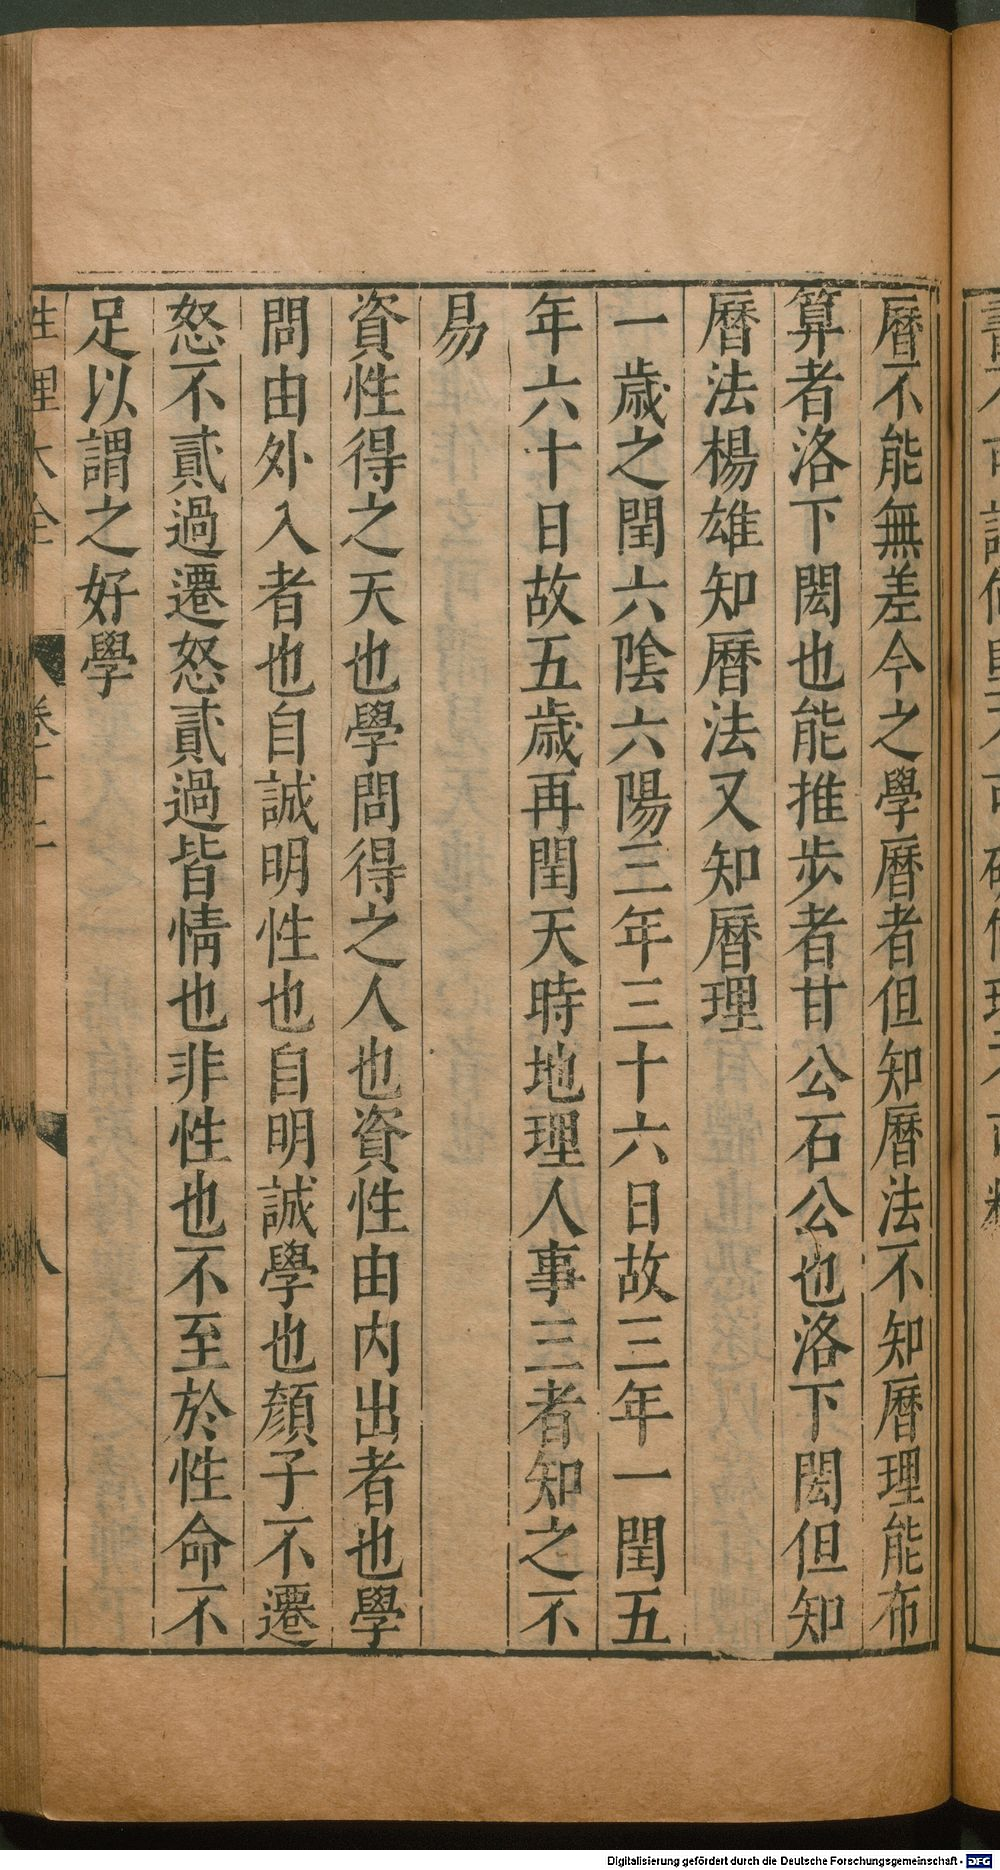 曆不能無差今之學曆者但知曆法不知曆理能布
算者洛下閎也能推步者甘公石公也洛下閎但知
曆法楊雄知曆法又知曆理
一歲之閏六陰六陽三年三十六日故三年一閏五
年六十日故五歲再閏天時地理人事三者知之不
易
資性得之天也學問得之人也資性由內出者也學
問由外入者也自誠明性也自明誠學也顏子不遷
怒不貳過遷怒貳過皆情也非性也不至於性命不
足以謂之好學
性理大全
卷十二
八
Digitalisierung gefördert durch die Deutsche Forschungsgemeinschaft - DFG